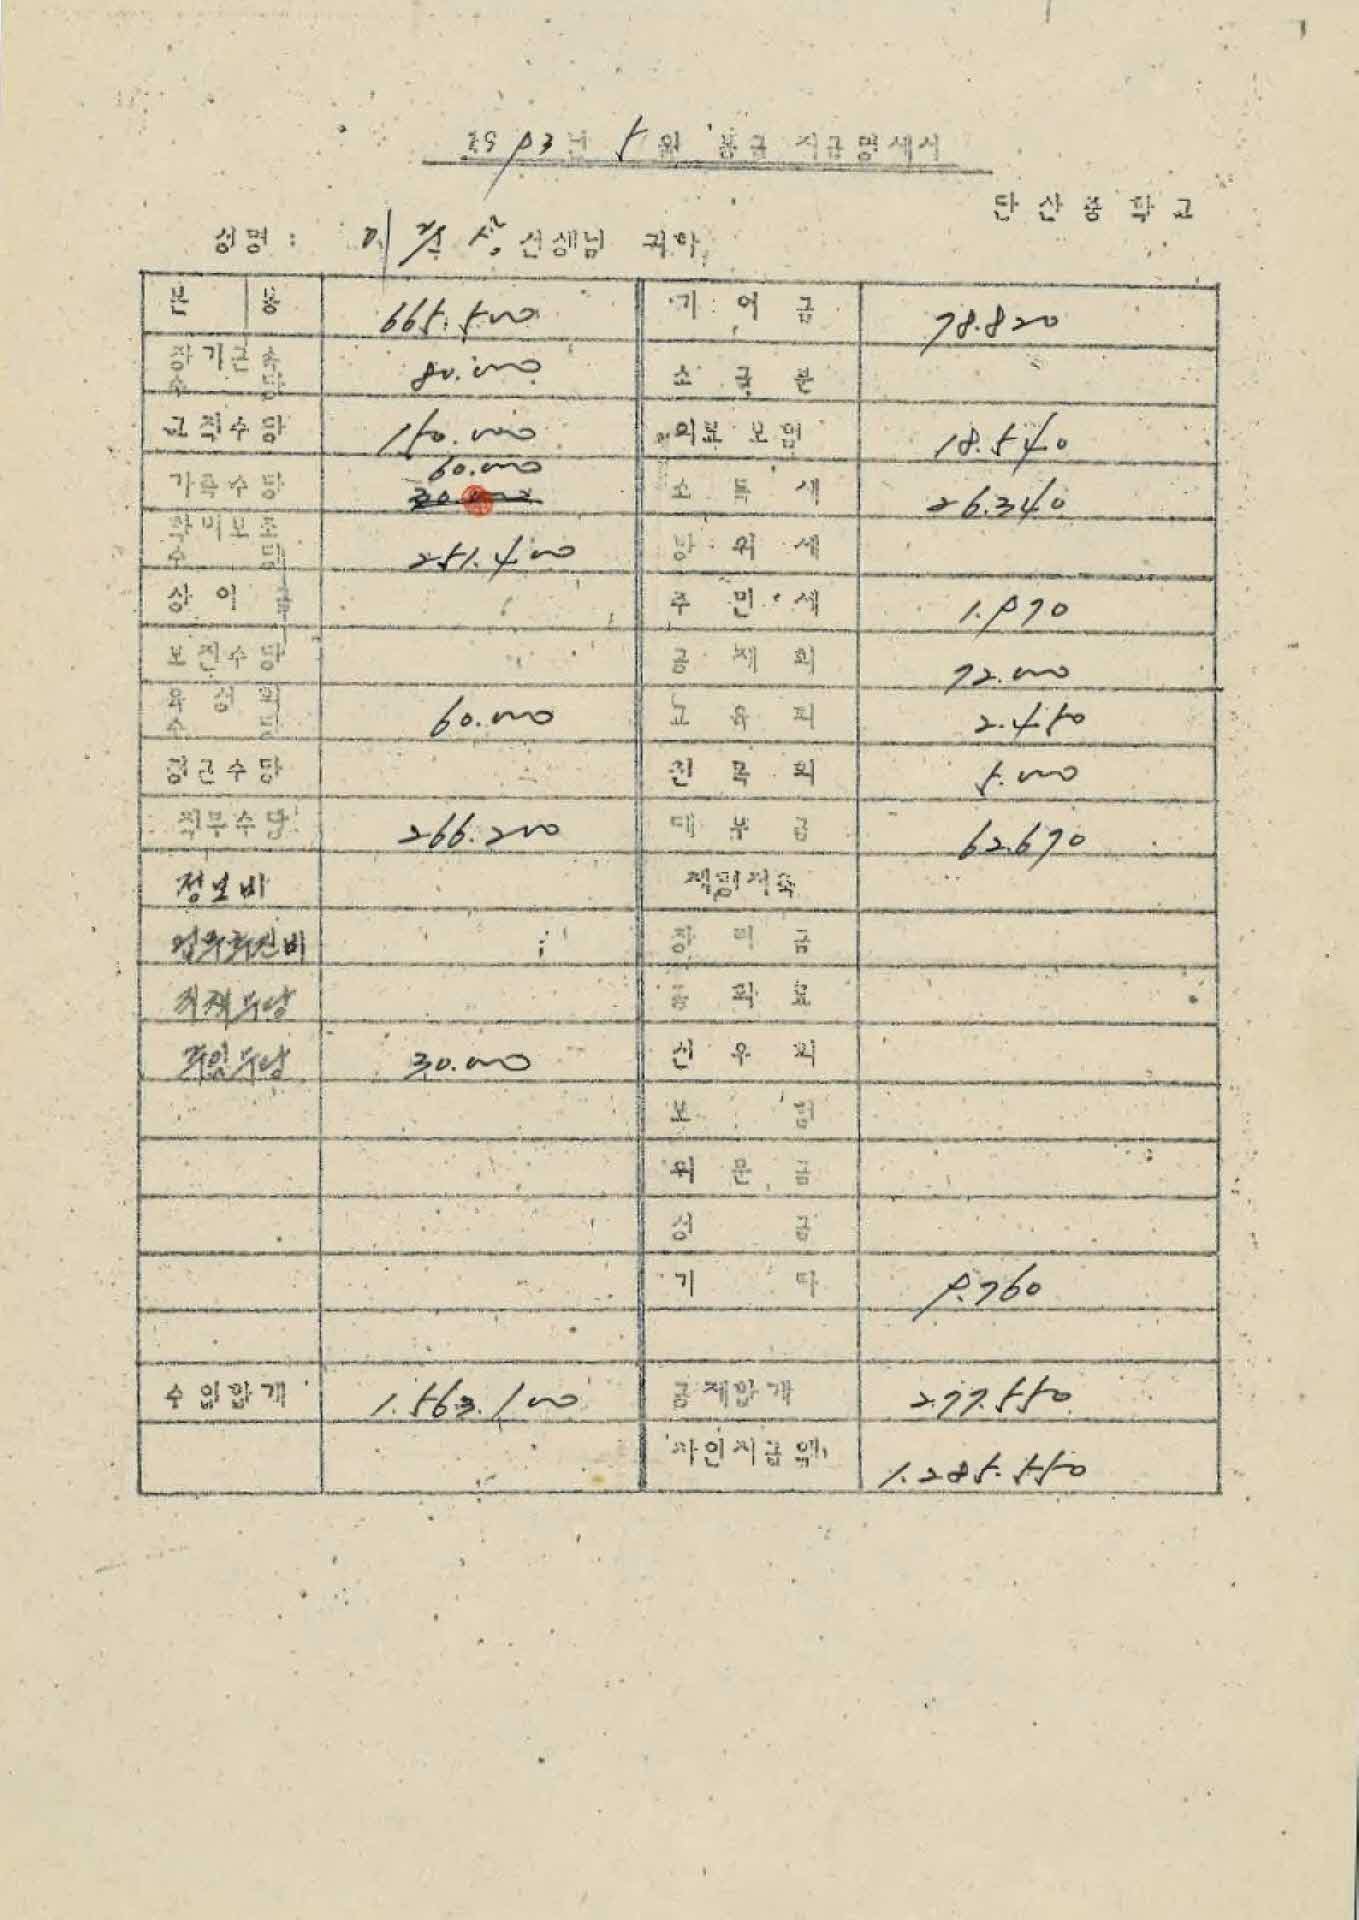 1993년 5월 봉급 지급명세서
단산중학교
성명 : 이 상 선생님 귀하
본봉 665.500 기여금 78.820
장기근속수당 80.000 소급분
교직수당 150.000 의료보험 18.540
가족수당 60.000 30.000 소득세 26.340
학비보조수당 251.400 방위세
상여금 주민세 1.970
보전수당 공제회 72.000
육성회수당 60.000 교육회 2.450
정근수당 친목회 5.000
직무수당 266.200 대부금 62.670
정보비 재형저축
업무추진비 장학금
수당
주임수당 30.000 신우회
보험
위문금
성금
기타 9.760
수입합계 1.563.100 공제합계 277.550
차인지급액 1.285.550